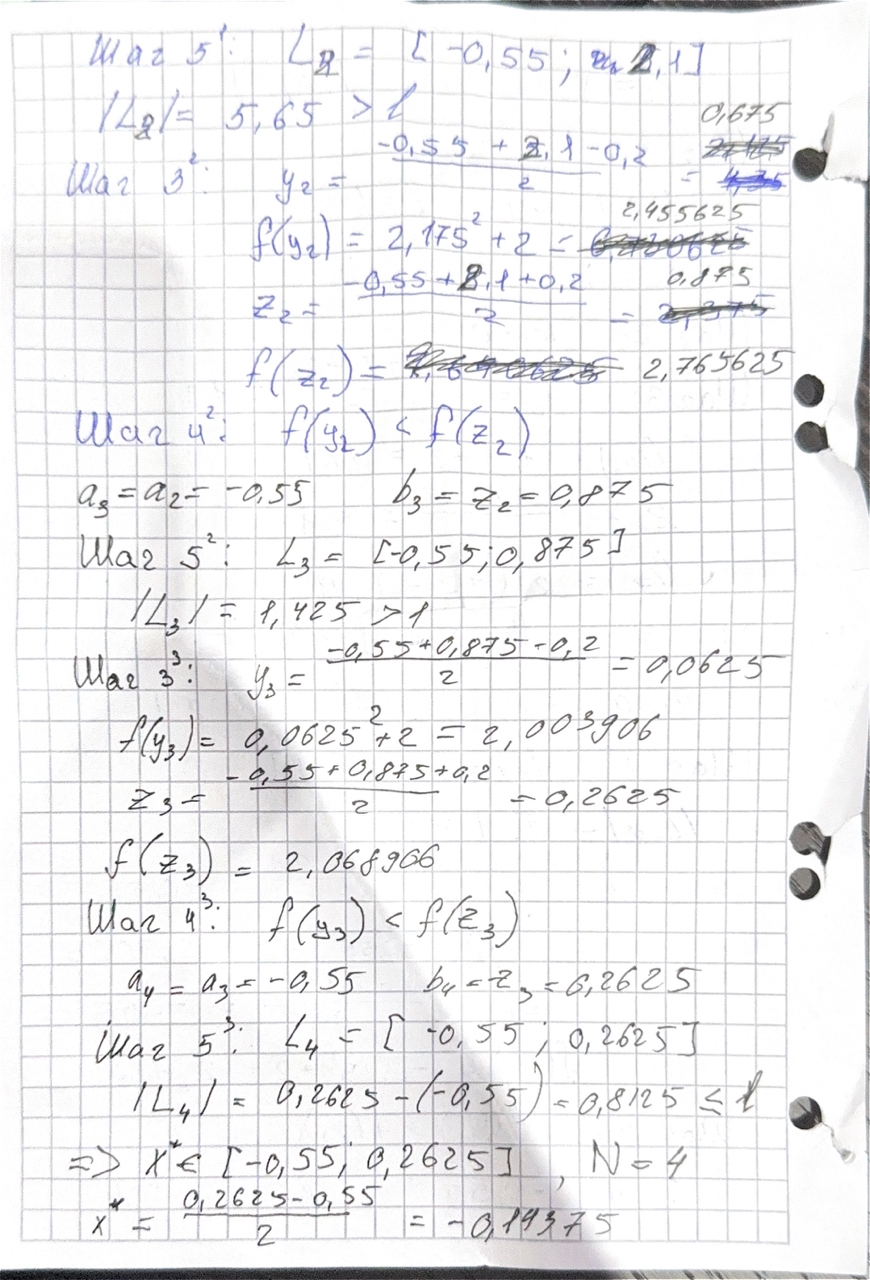 Шаг 5¹: L₂ = [-0,55; 2,1]
|L₂| = 5,65 > 1
Шаг 3²: y₂ = (-0,55 + 2,1 - 0,2)/2 = 0,675
f(y₂) = 2,175² + 2 = 2,455625
z₂ = (-0,55 + 2,1 + 0,2)/2 = 0,875
f(z₂) = 2,765625
Шаг 4²: f(y₂) < f(z₂)
a₃ = a₂ = -0,55 b₃ = z₂ = 0,875
Шаг 5²: L₃ = [-0,55; 0,875]
|L₃| = 1,425 > 1
Шаг 3³: y₃ = (-0,55 + 0,875 - 0,2)/2 = 0,0625
f(y₃) = 0,0625² + 2 = 2,003906
z₃ = (-0,55 + 0,875 + 0,2)/2 = 0,2625
f(z₃) = 2,068906
Шаг 4³: f(y₃) < f(z₃)
a₄ = a₃ = -0,55 b₄ = z₃ = 0,2625
Шаг 5³: L₄ = [-0,55; 0,2625]
|L₄| = 0,2625 - (-0,55) = 0,8125 ≤ 1
=> x* ∈ [-0,55; 0,2625], N = 4
x* = (0,2625 - 0,55)/2 = -0,14375